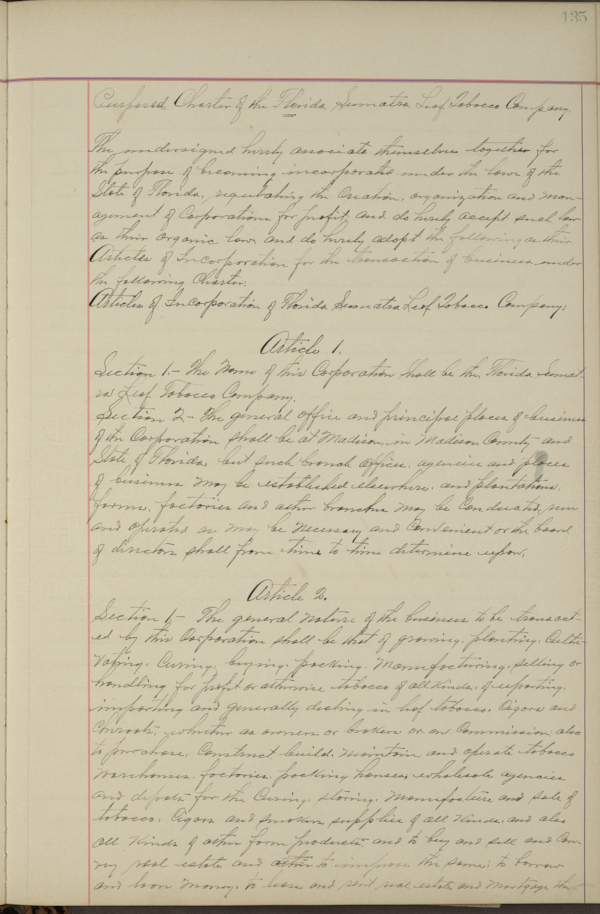 135
Purposed Charter of the Florida Sumatra Leaf Tobacco Company.
The undersigned hereby associate themselves together for
the purpose of becoming incorporated under the laws of the
State of Florida, regulating the Creation, organization and man-
agement of Corporations for profit, and do hereby accept such law
as their organic law, and do hereby adopt the following as their
Articles of Incorporation for the transaction of business under
the following Charter.
Articles of Incorporation of Florida Sumatra Leaf Tobacco Company.
Article 1.
Section 1.- The Name of this Corporation shall be the Florida Sumat-
ra Leaf Tobacco Company.
Section 2.- The general office and principal place of business
of the Corporation shall be at Madison, in Madison County and
State of Florida, but such branch offices, agencies and places
of business may be established elsewhere, and plantations,
farms, factories and other branches may be Conducted, run
and operated as may be necessary and Convenient or the board
of directors shall from time to time determine upon.
Article 2.
Section 1.- The general nature of the business to be transact-
ed by this Corporation shall be that of growing, planting, Culti-
vating, Curing, buying, packing, Manufacturing, selling or
handling for profit or otherwise tobacco of all Kinds, of exporting,
importing and generally dealing in leaf tobacco, Cigars and
Cheroots, whether as owners or brokers or on Commission, also
to purchase, Construct, build, Maintain and operate tobacco
warehouses, factories, packing houses, wholesale agencies
and depots for the Curing, storing, Manufacture and sale of
tobacco, Cigars and smokers supplies of all Kinds and also
all Kinds of other farm products, and to buy and sell and Con-
vey real estate and other to improve the same; to borrow
and loan money, to lease and rent real estate and mortgage the